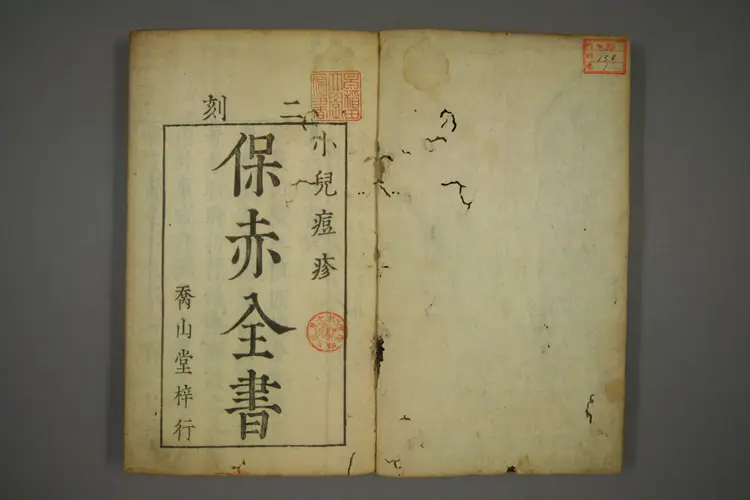 二刻
小兒痘疹
保赤全書
喬山堂梓行
159